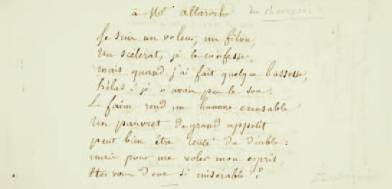 à Mr Altaroche du charivari
Je suis un voleur, un filou,
Un scelerat, je le confesse,
mais quand j'ai fait quelque bassesse,
hélas ! je n'avais pas le sou.
La faim rend un homme excusable
Un pauvret de grand appetit
peut bien être tenté du diable :
mais pour me voler mon esprit,
êtes vous donc si miserable ?